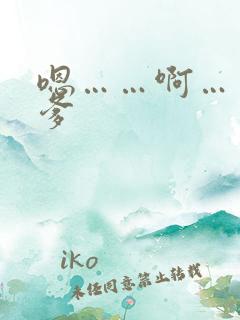 嗯……啊…
爹
iko
未经同意禁止转载